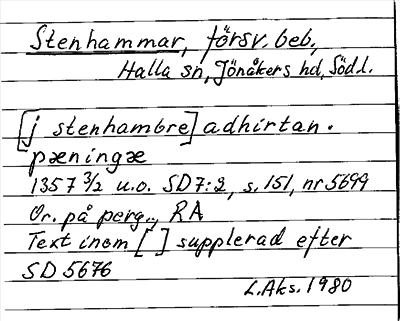 Stenhammar, försv. beb.,
Halla sn, Jönåkers hd, Södl.
[j stenhambre] adhirtan.
pæningæ
1357 3/2 u.o. SD 7:2, s. 151, nr 5699
Or. på perg., RA
Text inom [ ] supplerad efter
SD 5676
L. Aks. 1980